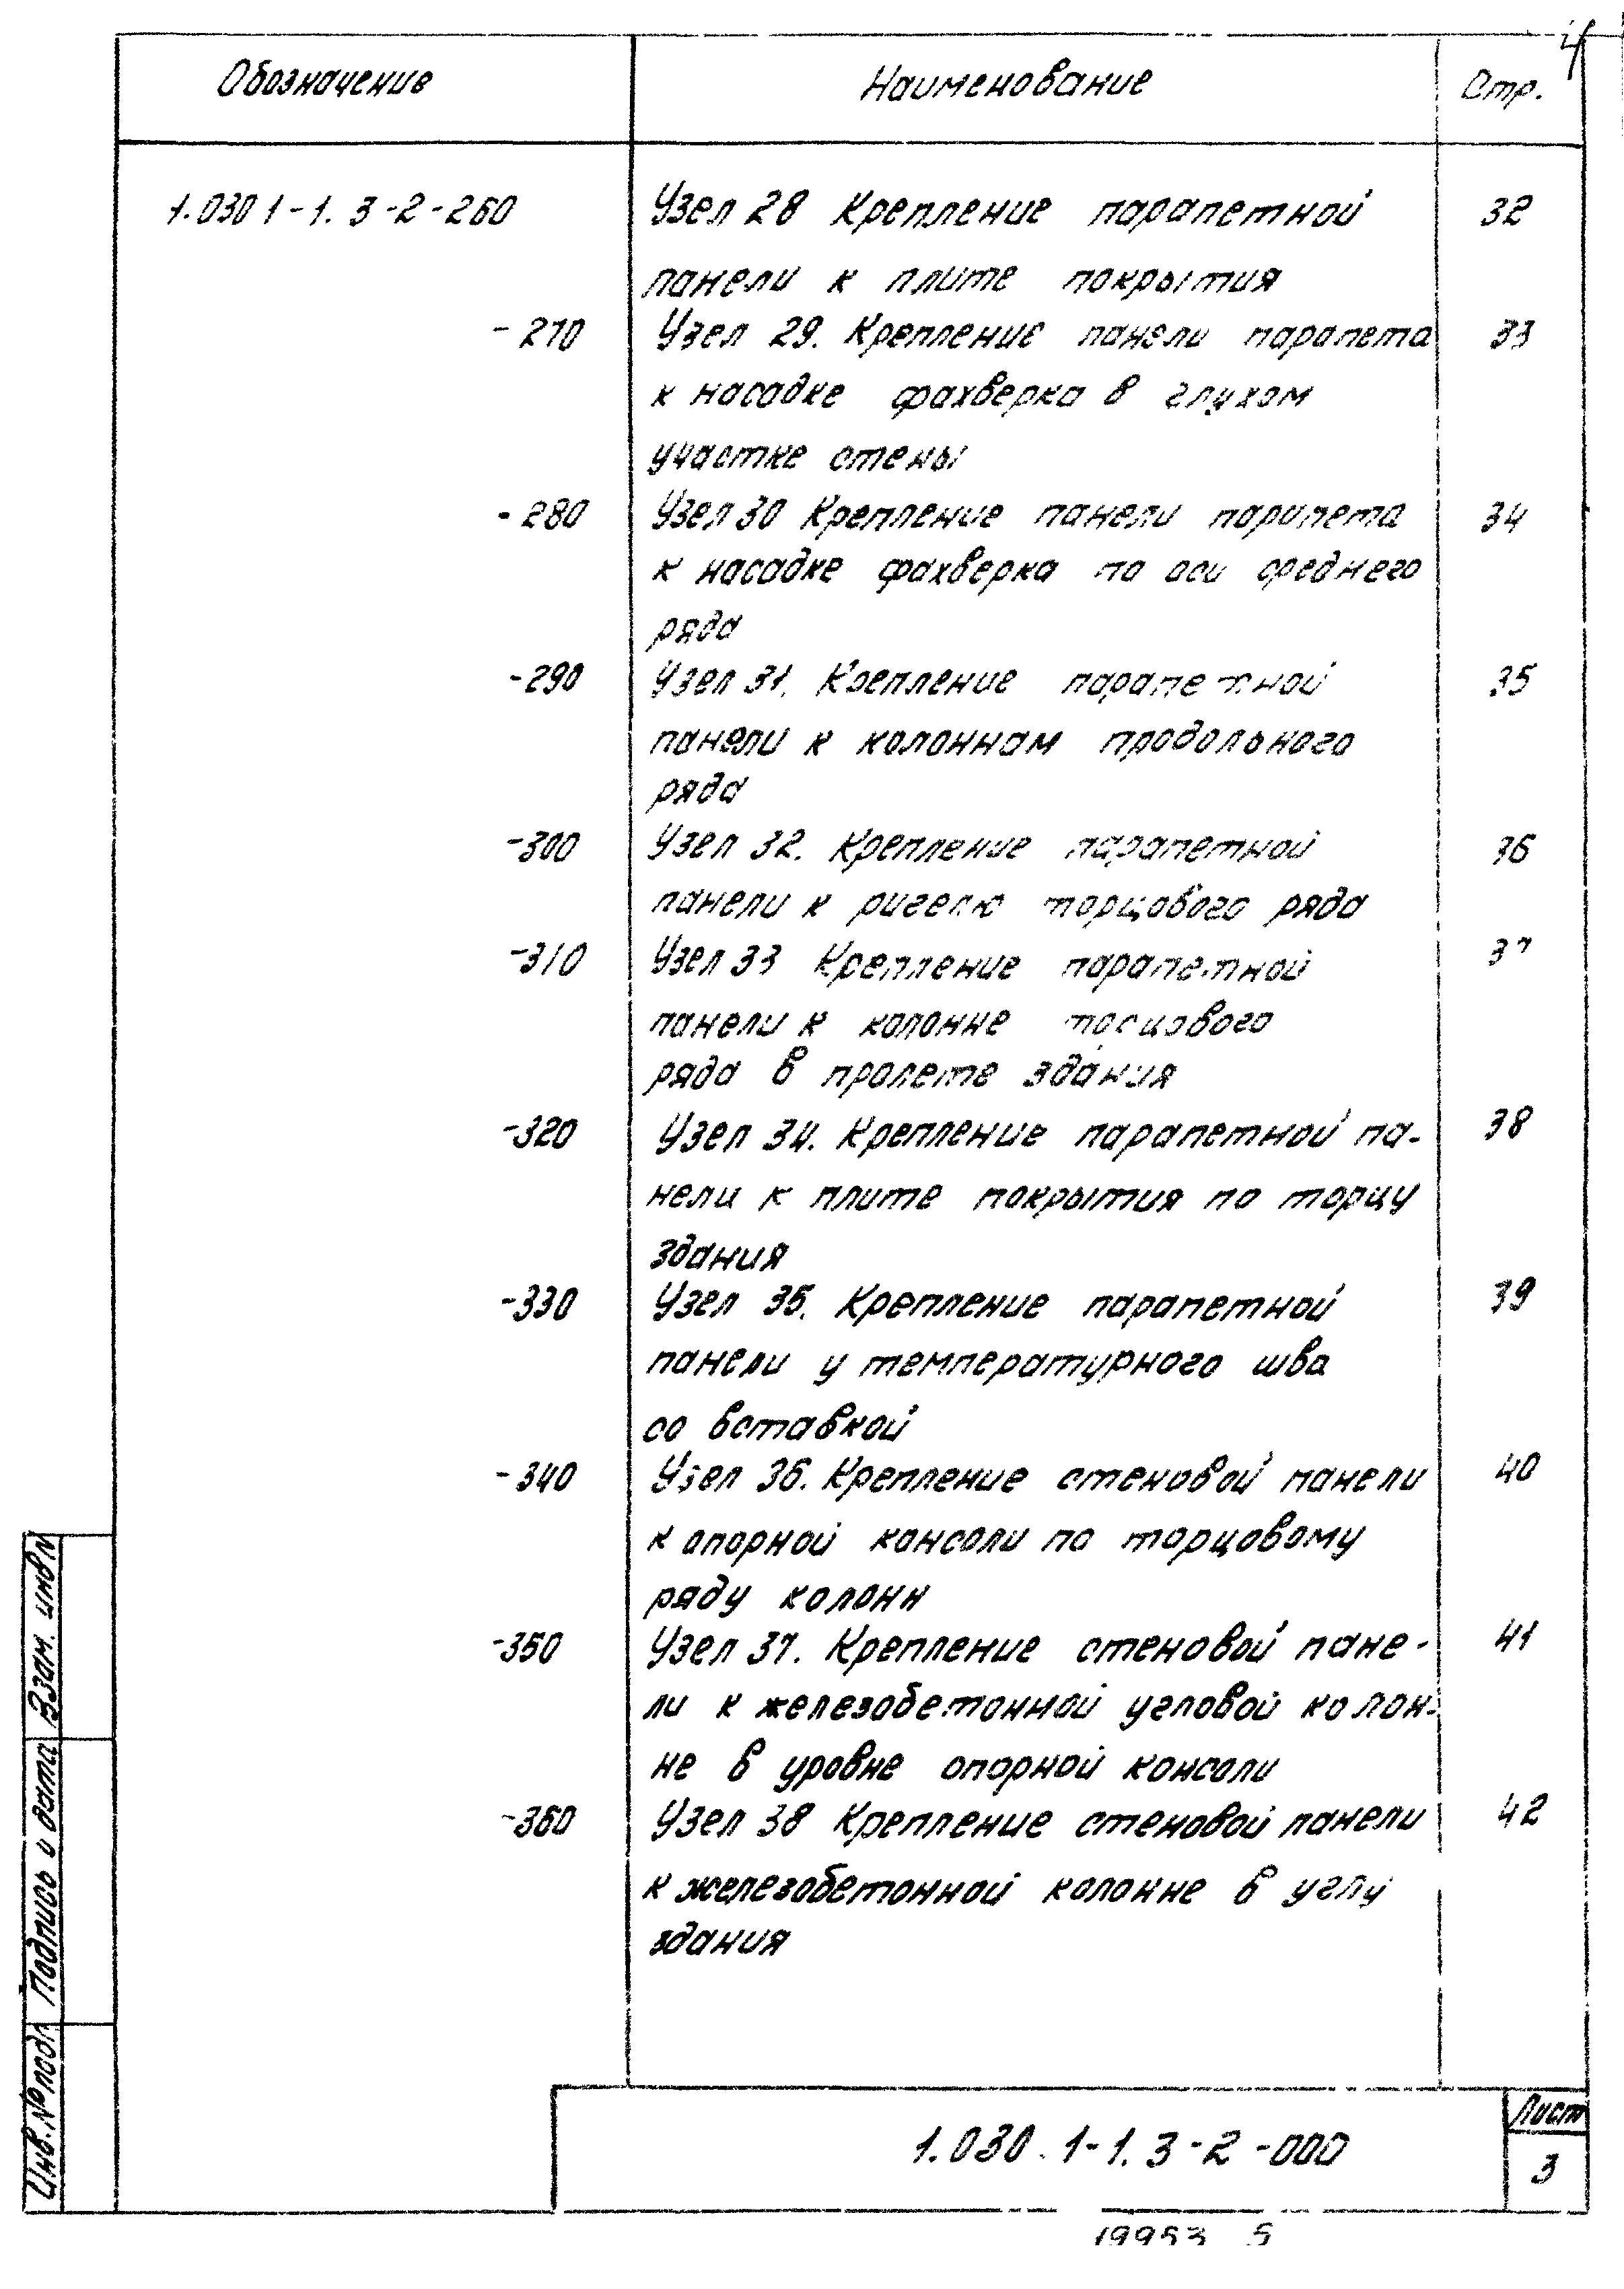 4
Обозначение Наименование Стр.
1.030 1-1. 3-2-260 Узел 28 Крепление парапетной 32
панели к плите покрытия
-270 Узел 29. Крепление панели парапета 33
к насадке фахверка в глухом
участке стены
-280 Узел 30 Крепление панели парапета 34
к насадке фахверка по оси среднего
ряда
-290 Узел 31. Крепление парапетной 35
панели к колоннам продольного
ряда
-300 Узел 32. Крепление парапетной 36
панели к ригелю торцового ряда
-310 Узел 33 Крепление парапетной 37
панели к колонне торцового
ряда в пролете здания
-320 Узел 34. Крепление парапетной па-
38
нели к плите покрытия по торцу
здания
-330 Узел 35. Крепление парапетной 39
панели у температурного шва
со вставкой
-340 Узел 36. Крепление стеновой панели 40
к опорной консоли по торцовому
ряду колонн
-350 Узел 37. Крепление стеновой пане- 41
ли к железобетонной угловой колон-
не в уровне опорной консоли
-360 Узел 38 Крепление стеновой панели 42
к железобетонной колонне в углу
здания
Инв.№подл Подпись и дата Взам. инв№
1.030.1-1.3-2-000
Лист
3
19953 5